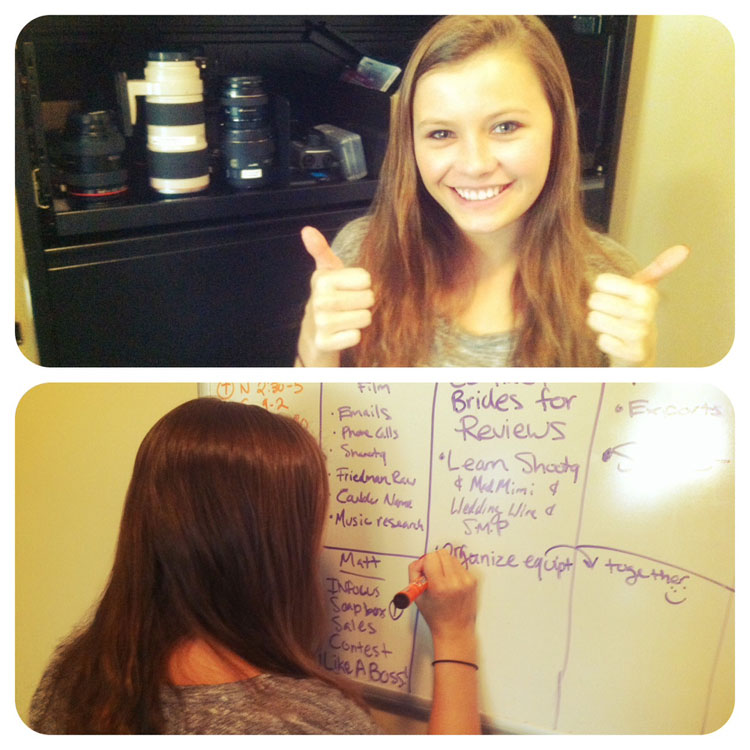 N 2:30-5
4-2
Film
• Emails
• Phone Calls
• Shootq
• Friedman Raw
Name
• Music research
Matt
INFocus
Soapbox
Sales
Contest
Like A Boss!
Brides for
Reviews
• Learn Shootq
& MadMimi &
Wedding Wire &
SMP
• Organize equipt
together
• Exports